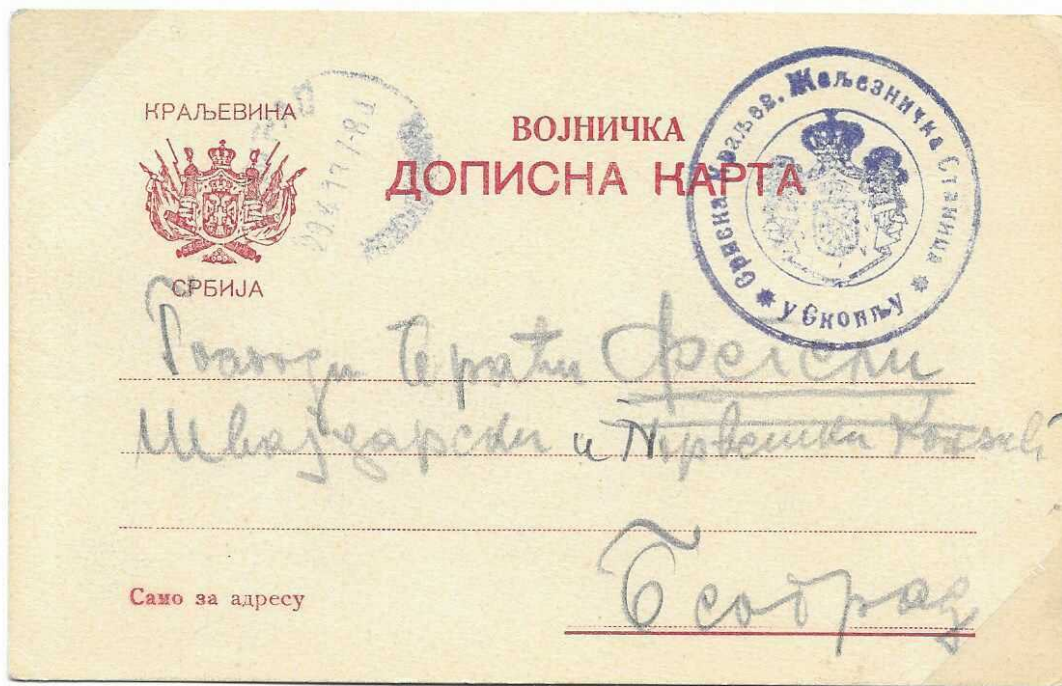 КРАЉЕВИНА
СРБИЈА
ВОЈНИЧКА
ДОПИСНА КАРТА
Српска Краљев. Жељезничка Станица
у Скопљу
Господи Браћи
Швајдарски и
Београд
Само за адресу